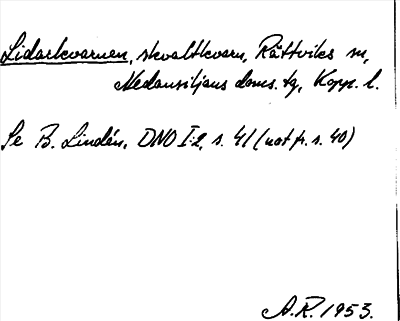 Lidarkvarnen, skvaltkvarn, Rättviks sn,
Nedansiljans doms. tg, Kopp. l.
Se B. Lindén, DNO I:2, s. 41 (not fr. s. 40)
A.R. 1953.